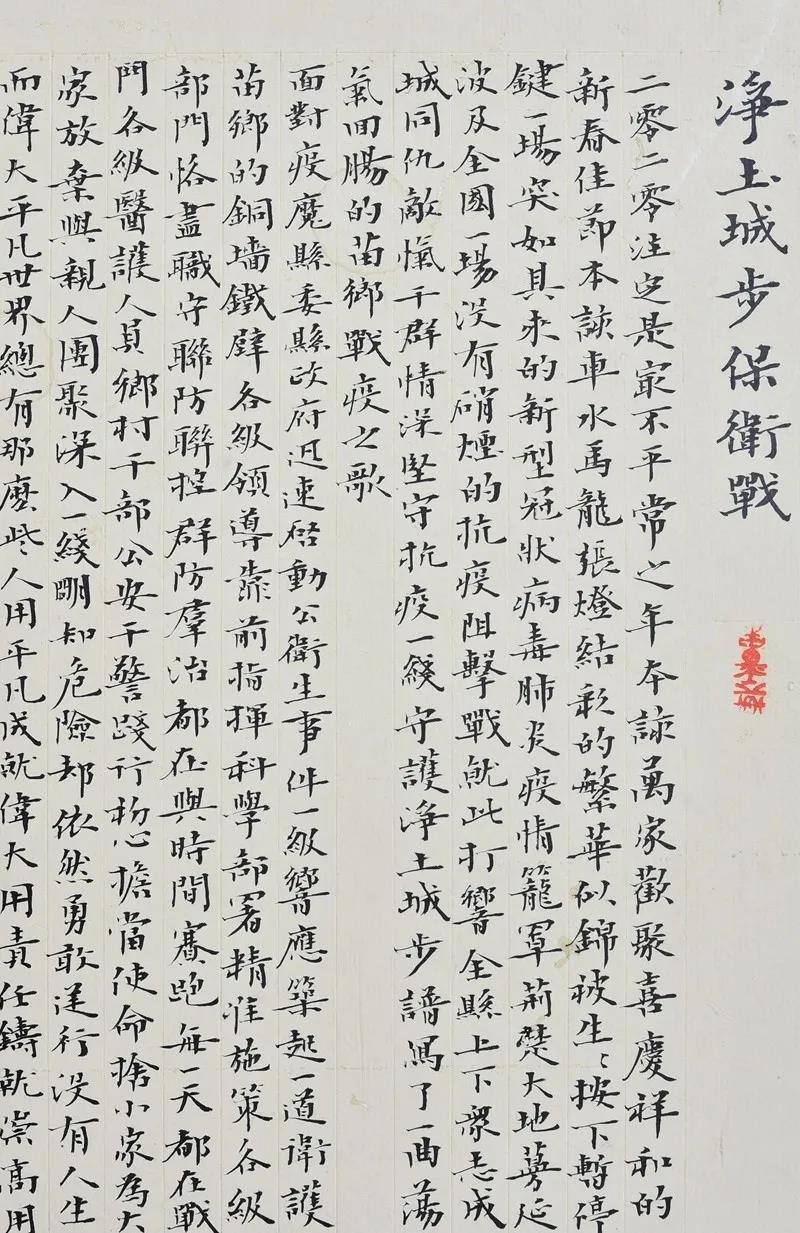 淨土城步保衛戰
二零二零注定是最不平常之年本該萬家歡聚喜慶祥和的
新春佳節本該車水馬龍張燈結彩的繁華似錦被生〻按下暫停
鍵一場突如其來的新型冠狀病毒肺炎疫情籠罩荊楚大地蔓延
波及全國一場没有硝煙的抗疫阻擊戰就此打響全縣上下衆志成
城同仇敵愾干群情深堅守抗疫一綫守護淨土城步譜寫了一曲蕩
氣回腸的苗鄉戰疫之歌
面對疫魔縣委縣政府迅速啓動公衛生事件一級響應築起一道衛護
苗鄉的銅墙鐵壁各級領導靠前指揮科學部署精准施策各級
部門恪盡職守聯防聯控群防羣治都在與時間賽跑每一天都在戰
鬥各級醫護人員鄉村干部公安干警踐行初心擔當使命捨小家為大
家放棄與親人團聚深入一綫明知危險却依然勇敢逆行没有人生
而偉大平凡世界總有那麽些人用平凡成就偉大用責任鑄就崇高用